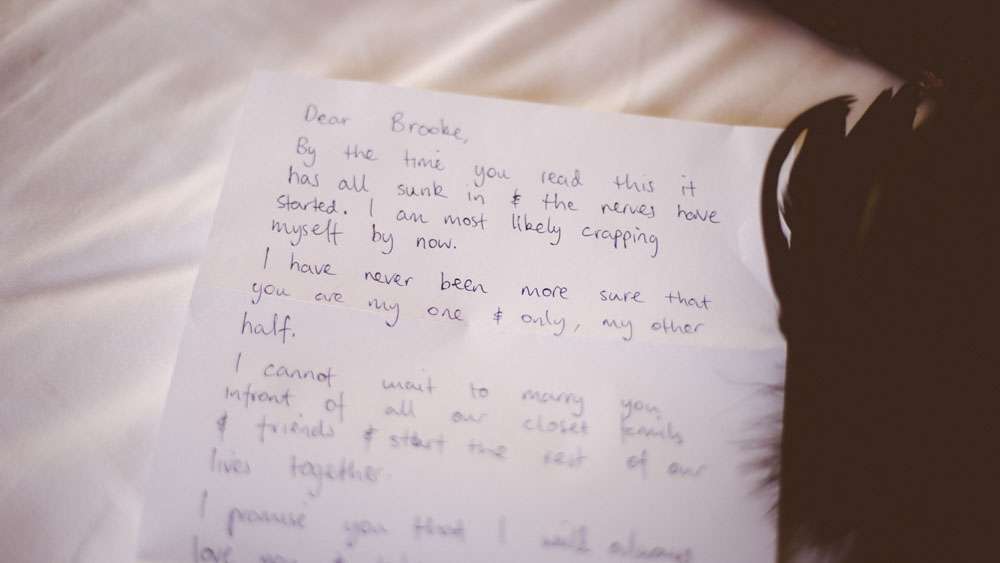 Dear Brooke,
By the time you read this it
has all sunk in & the nerves have
started. I am most likely crapping
myself by now.
I have never been more sure that
you are my one & only, my other
half.
I cannot wait to marry you
infront of all our closet family
& friends & start the rest of our
lives together.
I promise you that I will always
love you &